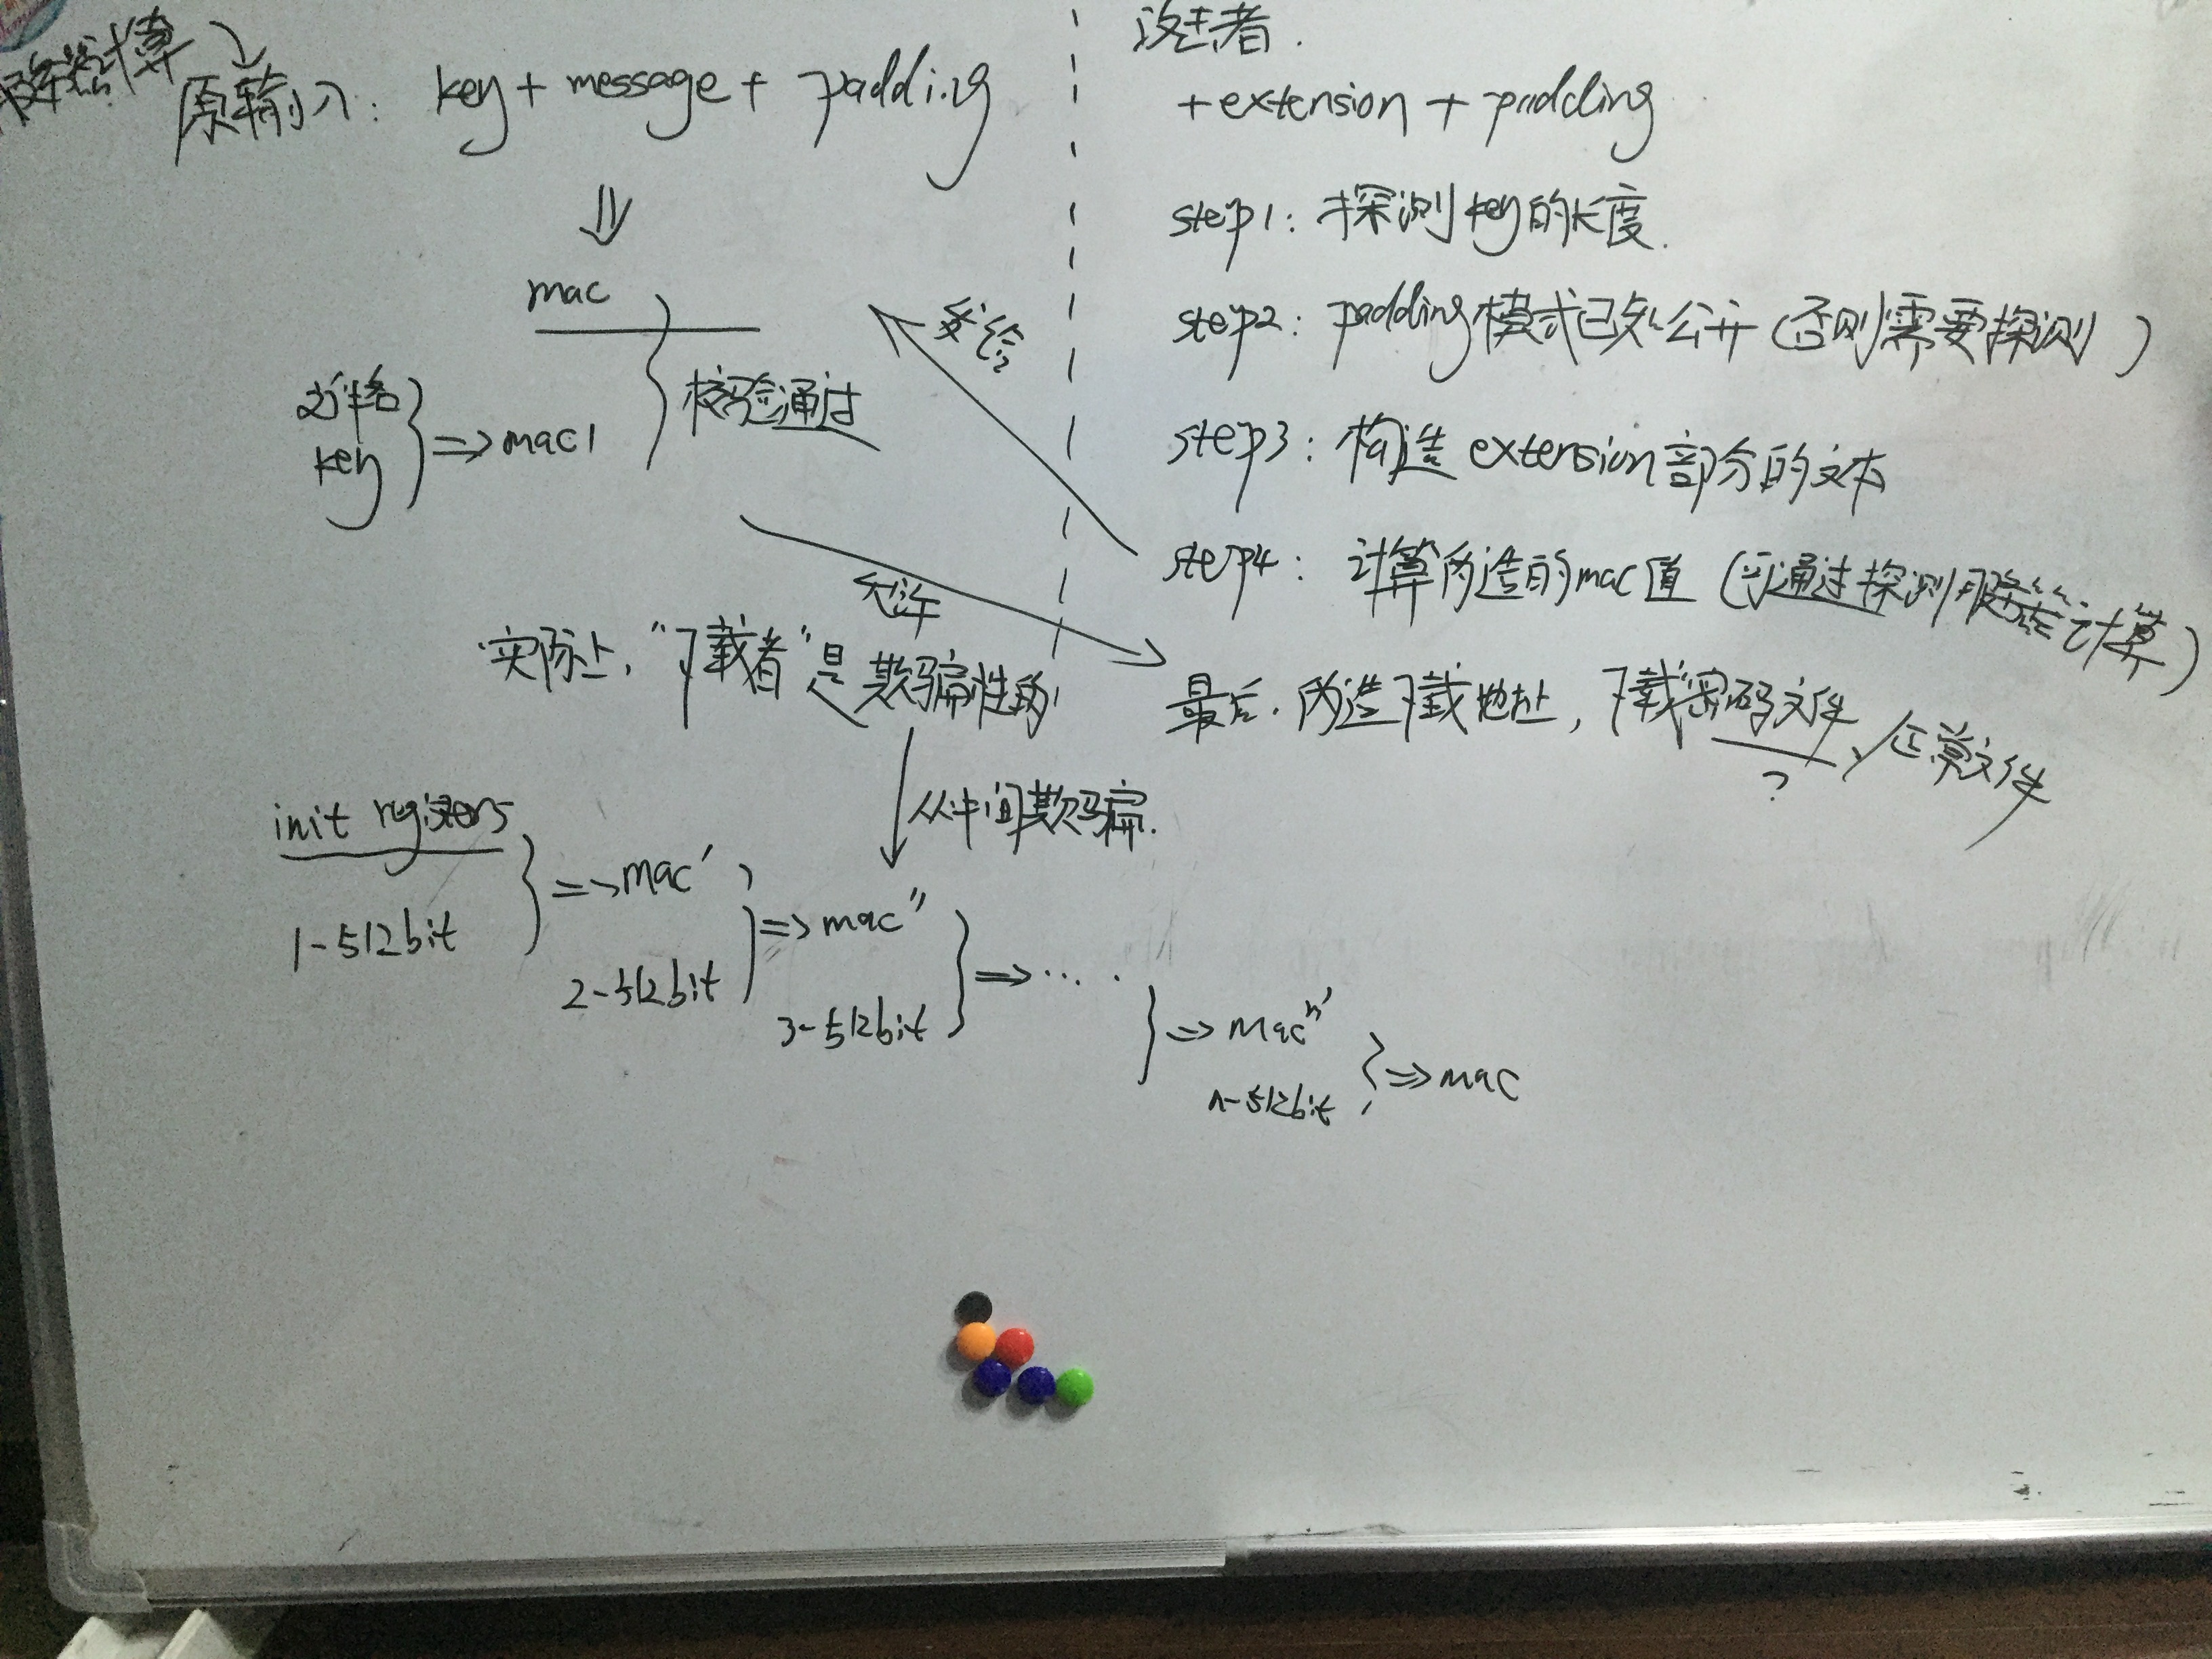 原输入: key + message + padding
⇓
mac
key
} => mac1
} 校验通过
实际上, "下载者"是欺骗性的
从中间欺骗.
init registers
1-512bit
} => mac'
2-512bit
} => mac''
3-512bit
} => ....
} => mac^n'
n-512bit
} => mac
+ extension + padding
step1: 探测key的长度.
step2: padding模式已知公开 (否则需要探测)
step3: 构造extension部分的文本
发给
step4: 计算构造的mac值 (可通过探测服务器计算)
允许
最后. 构造下载地址, 下载密码文件、正常文件
?